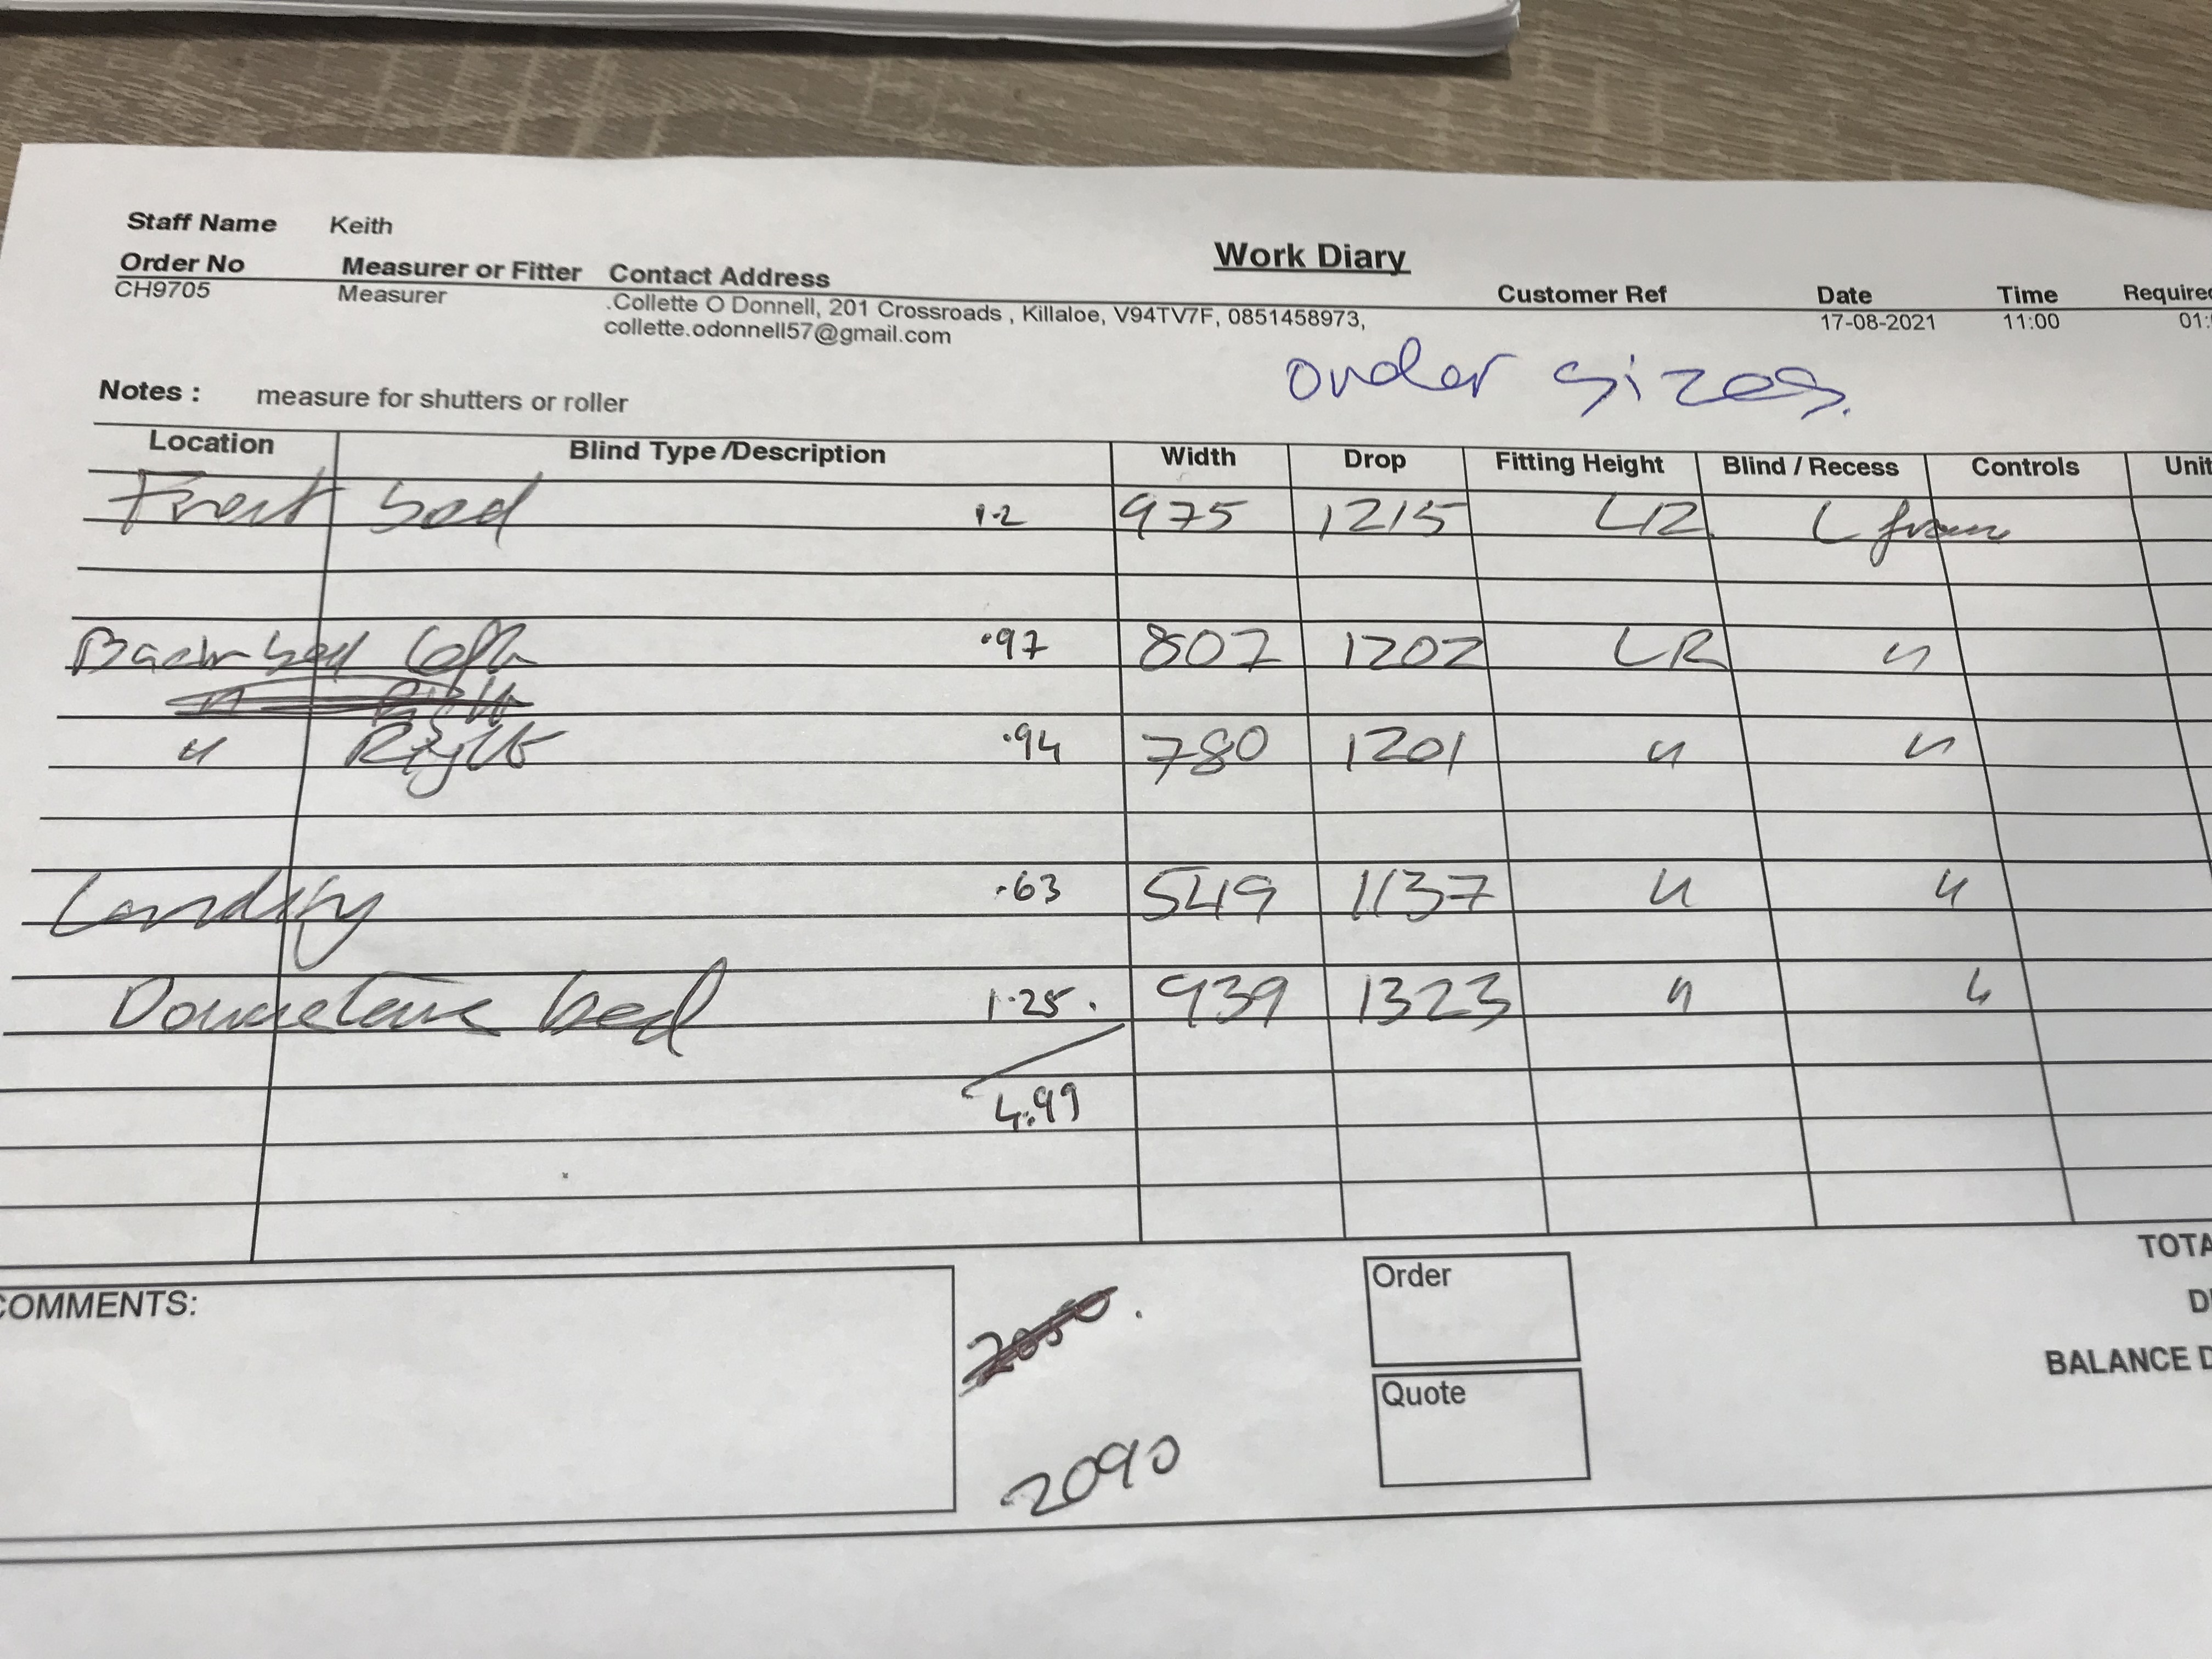 Staff Name Keith
Work Diary
Order No Measurer or Fitter Contact Address Customer Ref Date Time Required
CH9705 Measurer .Collette O Donnell, 201 Crossroads , Killaloe, V94TV7F, 0851458973, 17-08-2021 11:00 01:
collette.odonnell57@gmail.com
order sizes.
Notes : measure for shutters or roller
Location Blind Type /Description Width Drop Fitting Height Blind / Recess Controls Unit
Front bed 1.2 975 1215 LR L frame
Back bed left .97 807 1202 LR "
" Right .94 780 1201 " "
Landing .63 549 1137 " "
Downstairs bed 1.25. 939 1323 " "
4.99
COMMENTS:
Order
Quote
2090
TOTA
D
BALANCE D